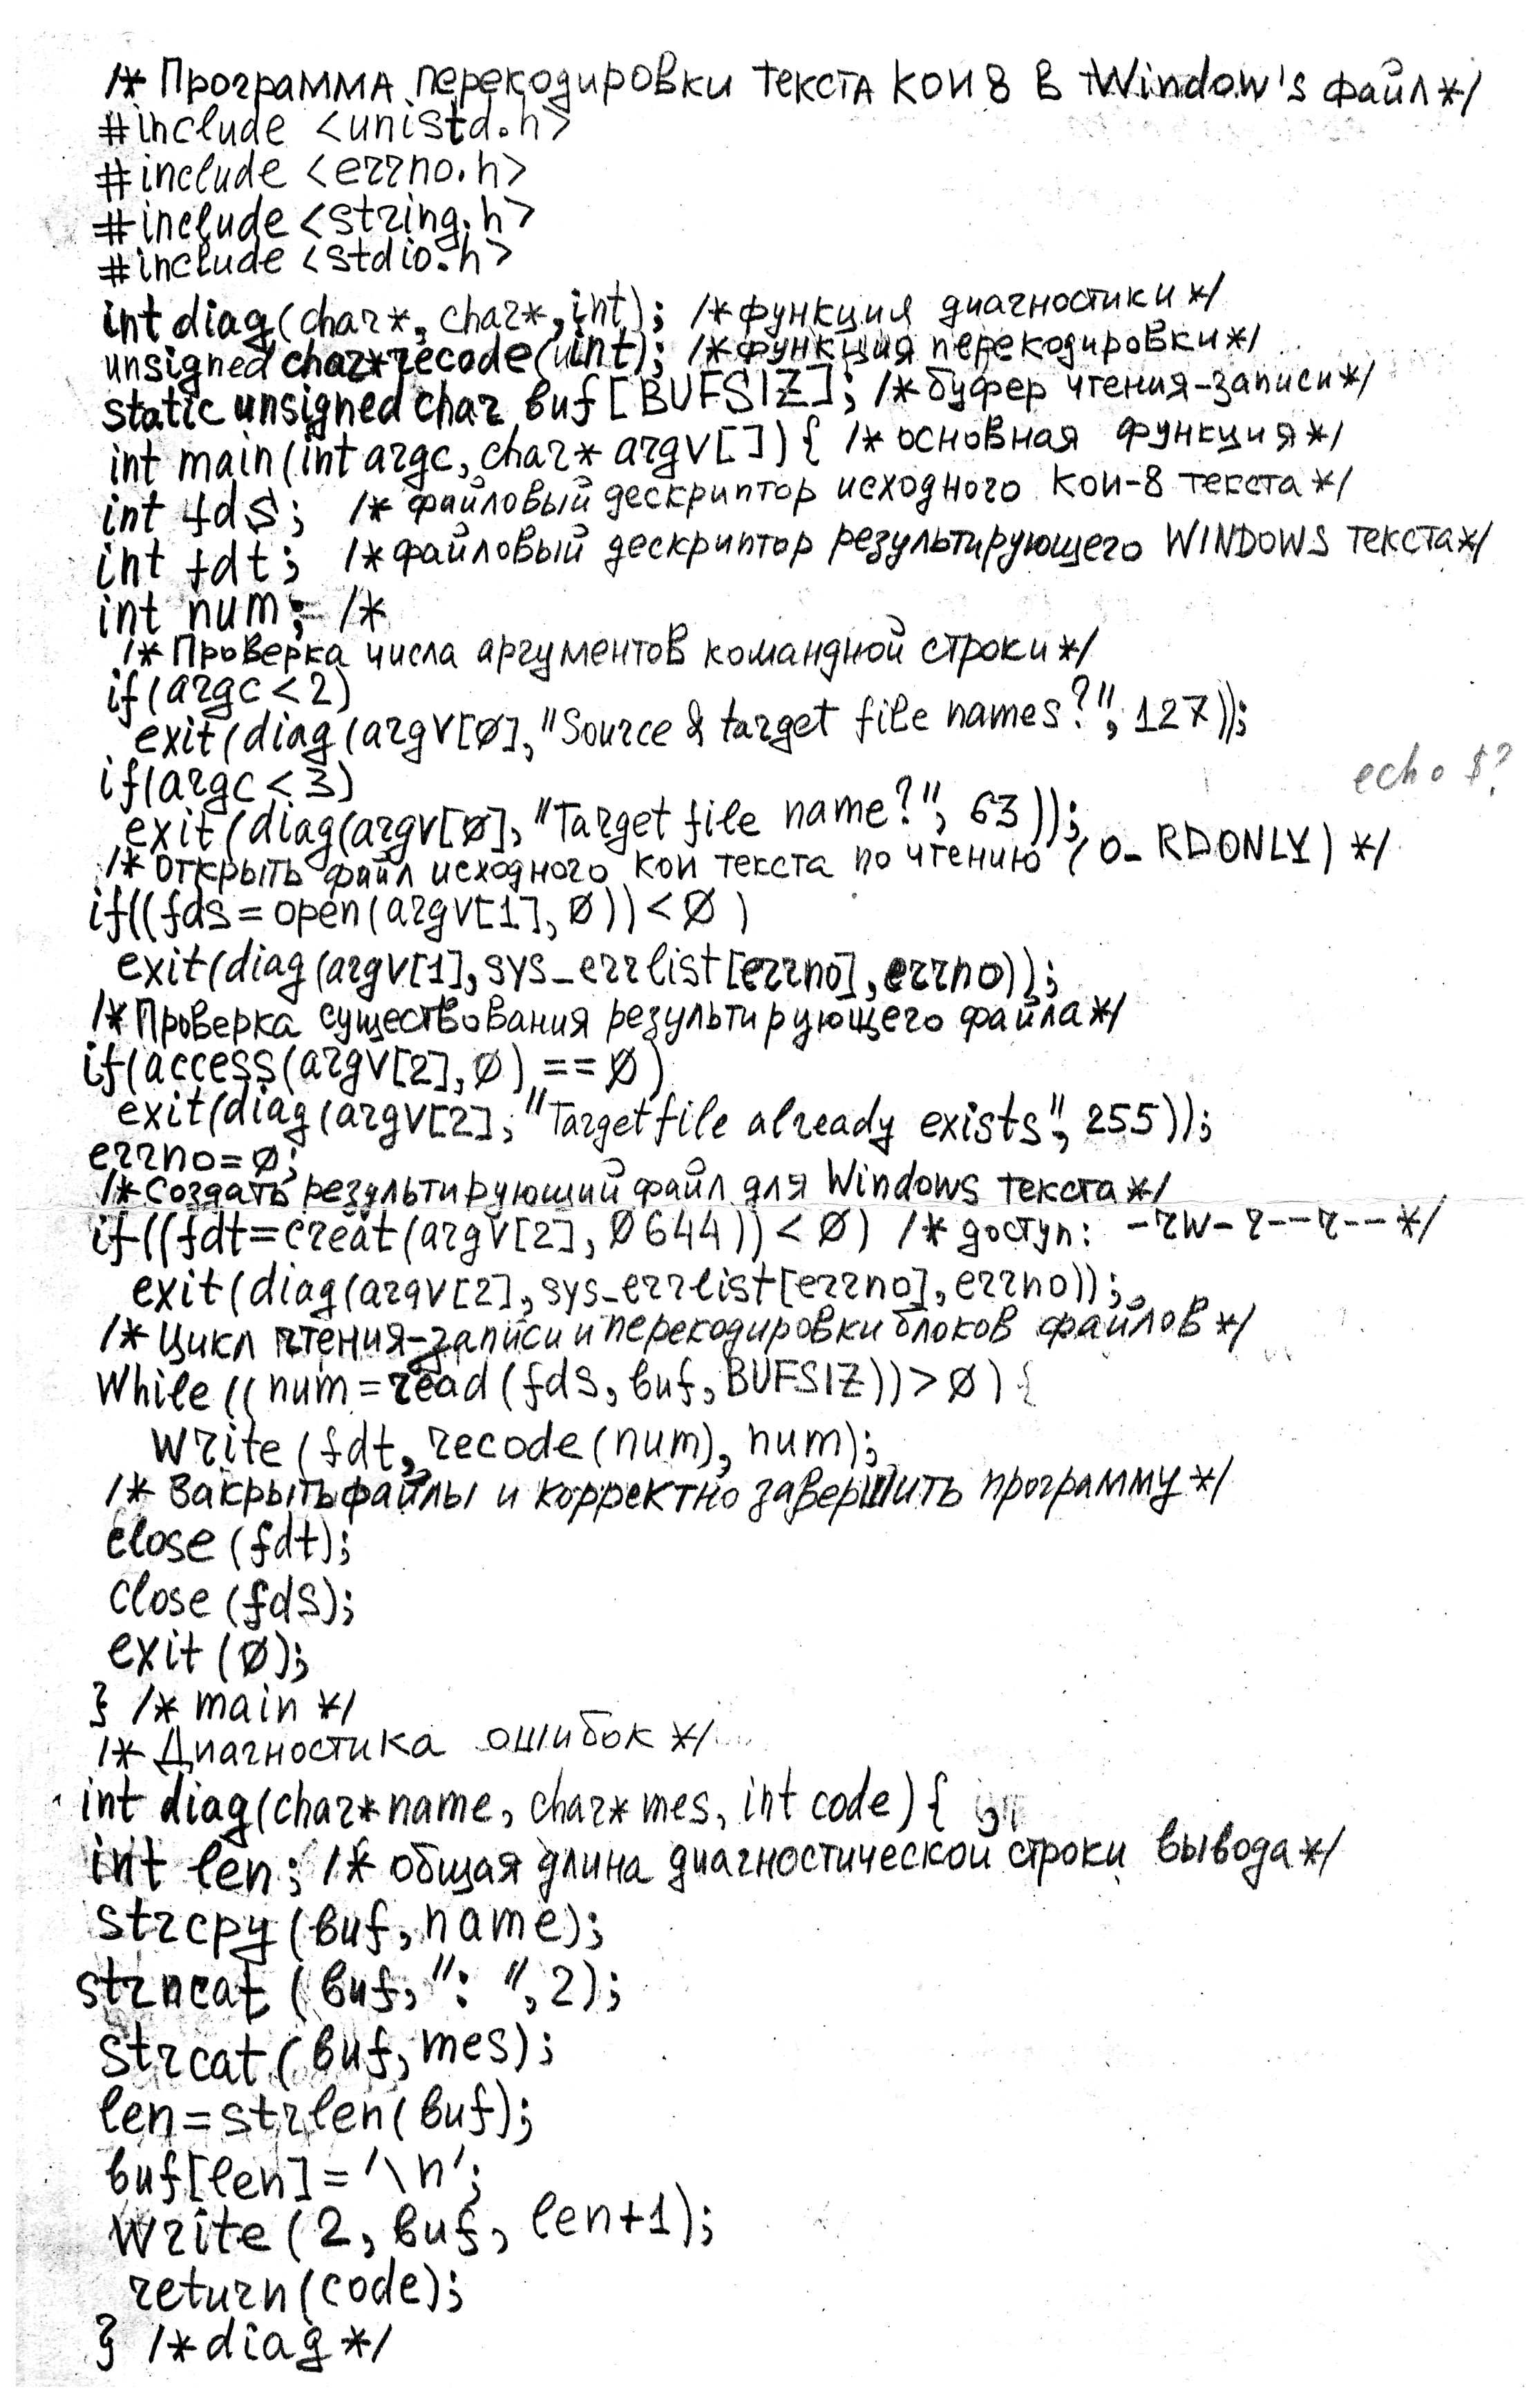 /* Программа перекодировки текста КОИ 8 в Window's файл */
#include <unistd.h>
#include <errno.h>
#include <string.h>
#include <stdio.h>
int diag(char*, char*, int); /* функция диагностики */
unsigned char*recode(int); /* функция перекодировки */
static unsigned char buf [BUFSIZ]; /* буфер чтения-записи */
int main(int argc, char* argv[]) { /* основная функция */
int fds; /* файловый дескриптор исходного кои-8 текста */
int fdt; /* файловый дескриптор результирующего WINDOWS текста */
int num; /*
/* Проверка числа аргументов командной строки */
if(argc < 2)
exit(diag(argv[0], "Source & target file names?", 127));
if(argc < 3)
echo $?
exit(diag(argv[0], "Target file name?", 63));
/* Открыть файл исходного кои текста по чтению (O_RDONLY) */
if((fds = open(argv[1], 0)) < 0 )
exit(diag(argv[1], sys_errlist[errno], errno));
/* Проверка существования результирующего файла */
if(access(argv[2], 0) == 0)
exit(diag(argv[2], "Target file already exists", 255));
errno=0;
/* Создать результирующий файл для Windows текста */
if((fdt=creat(argv[2], 0644)) < 0) /* доступ: -rw-r--r-- */
exit(diag(argv[2], sys_errlist[errno], errno));
/* Цикл чтения-записи и перекодировки блоков файлов */
While ((num = read(fds, buf, BUFSIZ)) > 0) {
write (fdt, recode(num), num);
/* Закрыть файлы и корректно завершить программу */
close (fdt);
close (fds);
exit (0);
} /* main */
/* Диагностика ошибок */
int diag(char*name, char* mes, int code) {
int len; /* общая длина диагностической строки вывода */
strcpy (buf, name);
strncat (buf, ": ", 2);
strcat (buf, mes);
len=strlen(buf);
buf[len]='\n';
write (2, buf, len+1);
return(code);
} /*diag*/